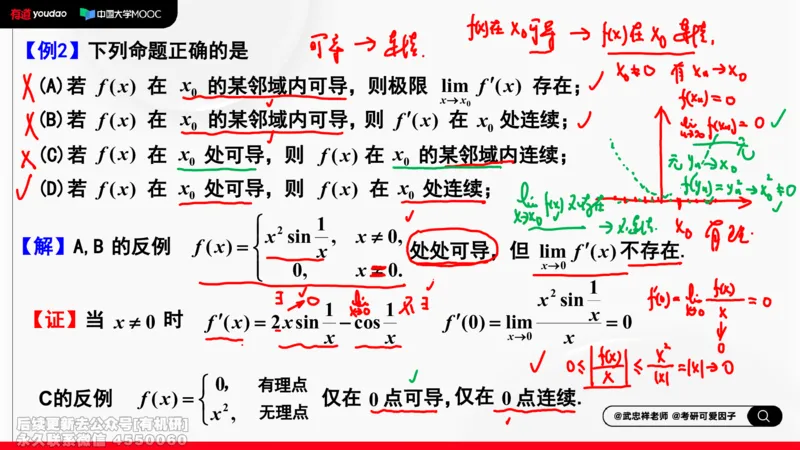 有道 youdao 中国大学MOOC
【例2】下列命题正确的是
可导 → 连续.
f(x)在 x₀ 可导 → f(x)在 x₀ 连续.
(A)若 f(x) 在 x₀ 的某邻域内可导，则极限 lim_{x→x₀} f′(x) 存在；
(B)若 f(x) 在 x₀ 的某邻域内可导，则 f′(x) 在 x₀ 处连续；
(C)若 f(x) 在 x₀ 处可导，则 f(x) 在 x₀ 的某邻域内连续；
(D)若 f(x) 在 x₀ 处可导，则 f(x) 在 x₀ 处连续；
x₀≠0 有 xₙ→x₀
f(xₙ)=0
lim_{n→∞} f(xₙ)=0
无 yₙ→x₀
f(yₙ)=yₙ²→x₀²≠0
lim_{x→x₀} f(x) 不存在 → 不连续.
x₀ 有理.
【解】A,B 的反例 f(x)={ x² sin 1/x, x≠0, 0, x=0. 处处可导，但 lim_{x→0} f′(x) 不存在.
∃ → 0 lim_{x→0} 不∃
【证】当 x≠0 时 f′(x)=2x sin 1/x − cos 1/x f′(0)=lim_{x→0} (x² sin 1/x)/x=0
f′(0)=lim_{x→0} f(x)/x=0
0
0≤|f(x)/x|≤x²/|x|=|x|→0
C的反例 f(x)={ 0, 有理点 x², 无理点 仅在 0 点可导，仅在 0 点连续.
@武忠祥老师 @考研可爱因子
后续更新去公众号[有机研]
永久联系微信 4550060